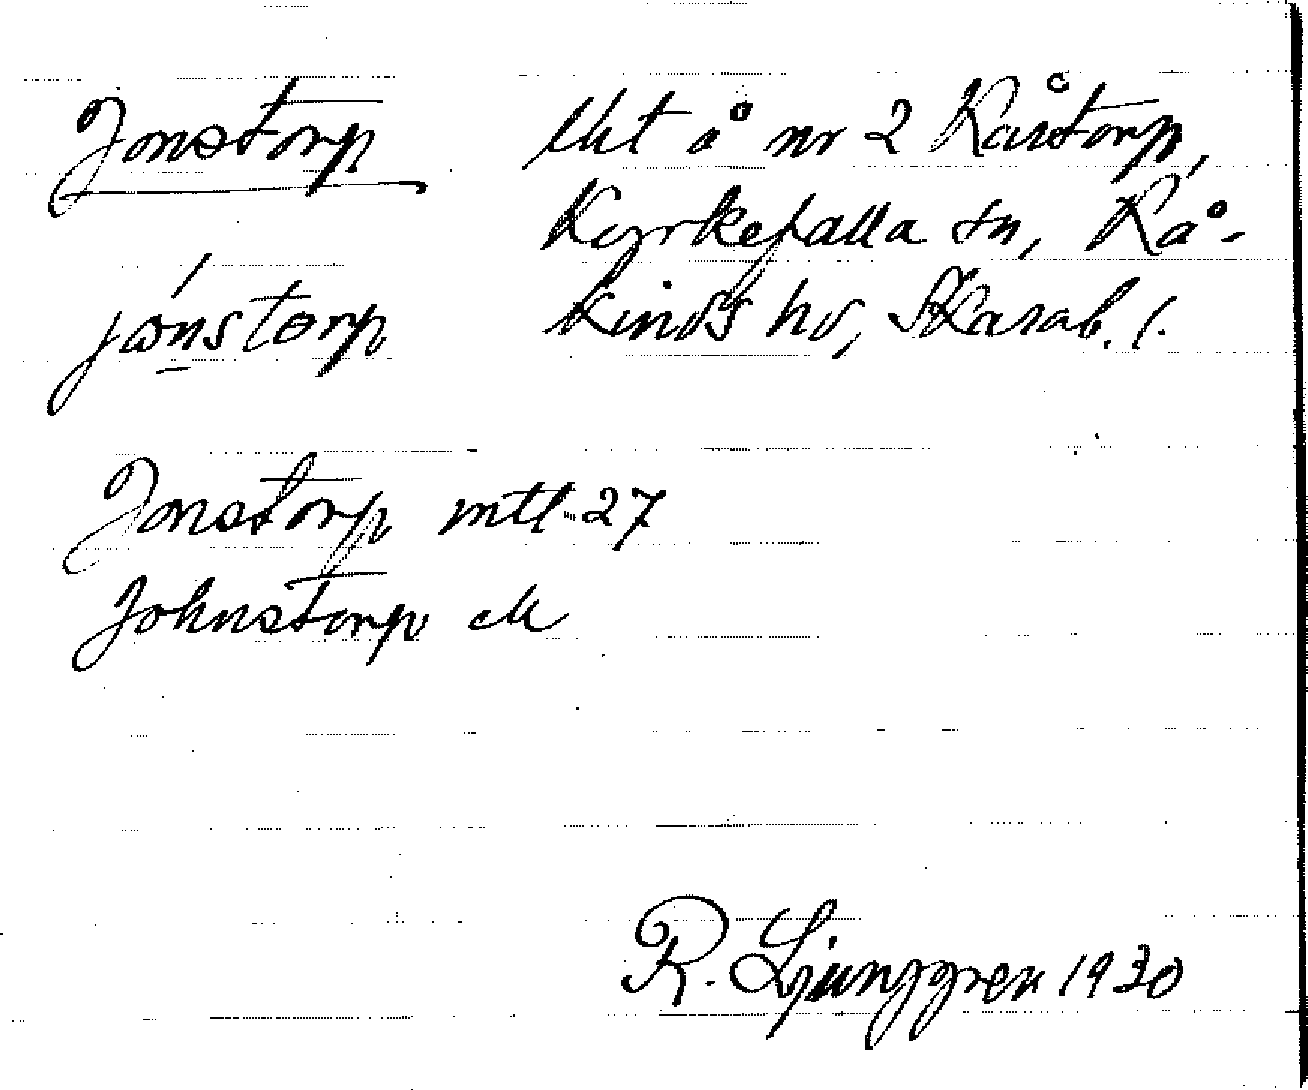 Jonstorp
lht å nr 2 Råstorp,
Kyrkefalla sn, Kå-
kinds hd, Skarab. l.
jonstorp
Jonstorp mtl 27
Johnstorp ek
R. Ljunggren 1930